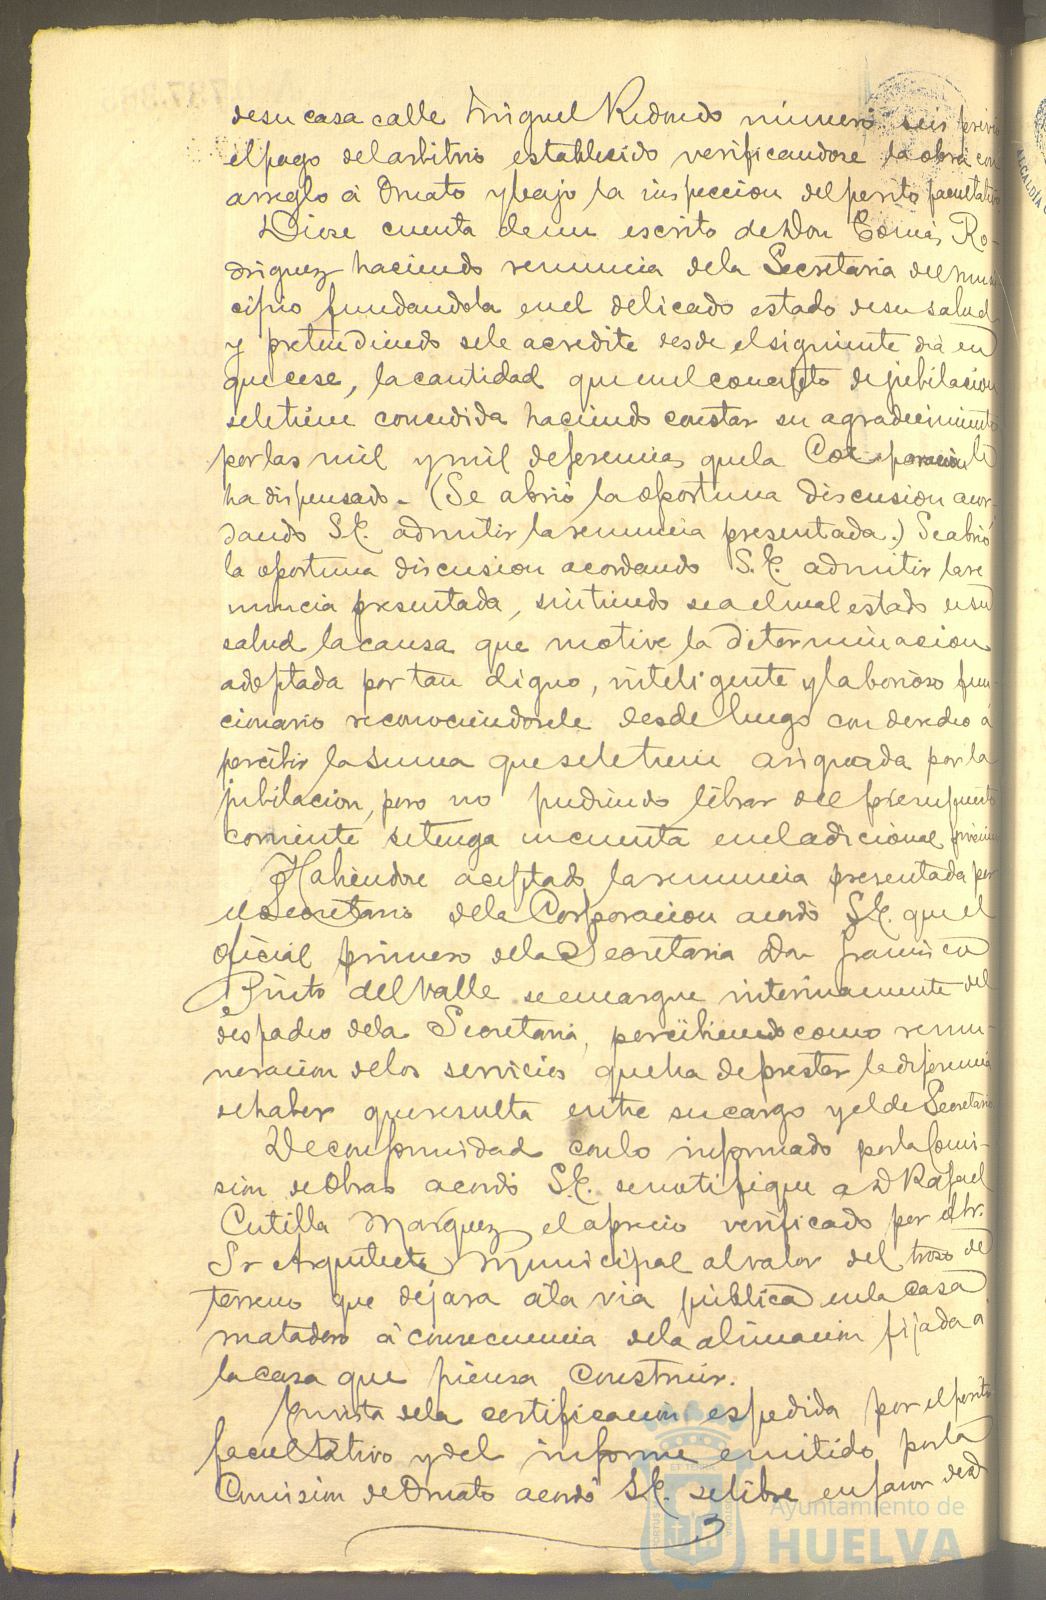 de su casa calle Miguel Redondo número seis previo
el pago del arbitrio establecido verificandose la obra con
arreglo á Ornato y bajo la inspeccion del perito facultativo
Diose cuenta de un escrito de Don Tomás Ro-
driguez haciendo renuncia de la Secretaria del muni
cipio fundandola en el delicado estado de su salud
y pretendiendo se le acredite desde el siguiente dia en
que cese, la cantidad que en el concepto de jubilacion
se le tiene concedida haciendo constar su agradecimiento
por las mil y mil deferencias que la Corporacion le
ha dispensado. (Se abrió la oportuna discusion acor-
dando S.E. admitir la renuncia presentada.) Se abrió
la oportuna discusion acordando S.E. admitir la re
nuncia presentada, sintiendo sea el mal estado en su
salud la causa que motive la determinacion
adoptada por tan digno, inteligente y laborioso fun-
cionario reconociendosele desde luego con derecho á
percibir la suma que se le tiene asignada por la
jubilacion, pero no pudiendo librar del presupuesto
corriente se tenga en cuenta en el adicional próximo
Habiendose aceptado la renuncia presentada por
el Secretario de la Corporacion acordó S.E. que el
oficial primero de la Secretaria Don Francisco
Pinto del Valle se encargue interinamente del
despacho de la Secretaria, percibiendo como remu-
neracion de los servicios que ha de prestar la diferencia
de haber que resulta entre su cargo y el de Secretario
De conformidad con lo informado por la Comi-
sion de Obras acordó S.E. se notifique a D Rafael
Cutilla Marquez el aprecio verificado por el
Sr Arquitecto Municipal al valor del trozo de
terreno que dejara á la via pública en la casa
matadero á consecuencia de la alineacion fijada a
la casa que piensa construir.
En vista de la certificacion espedida por el perito
facultativo y del informe emitido por la
Comision de Ornato acordó S.E. se libre en favor de D
Ayuntamiento de
HUELVA